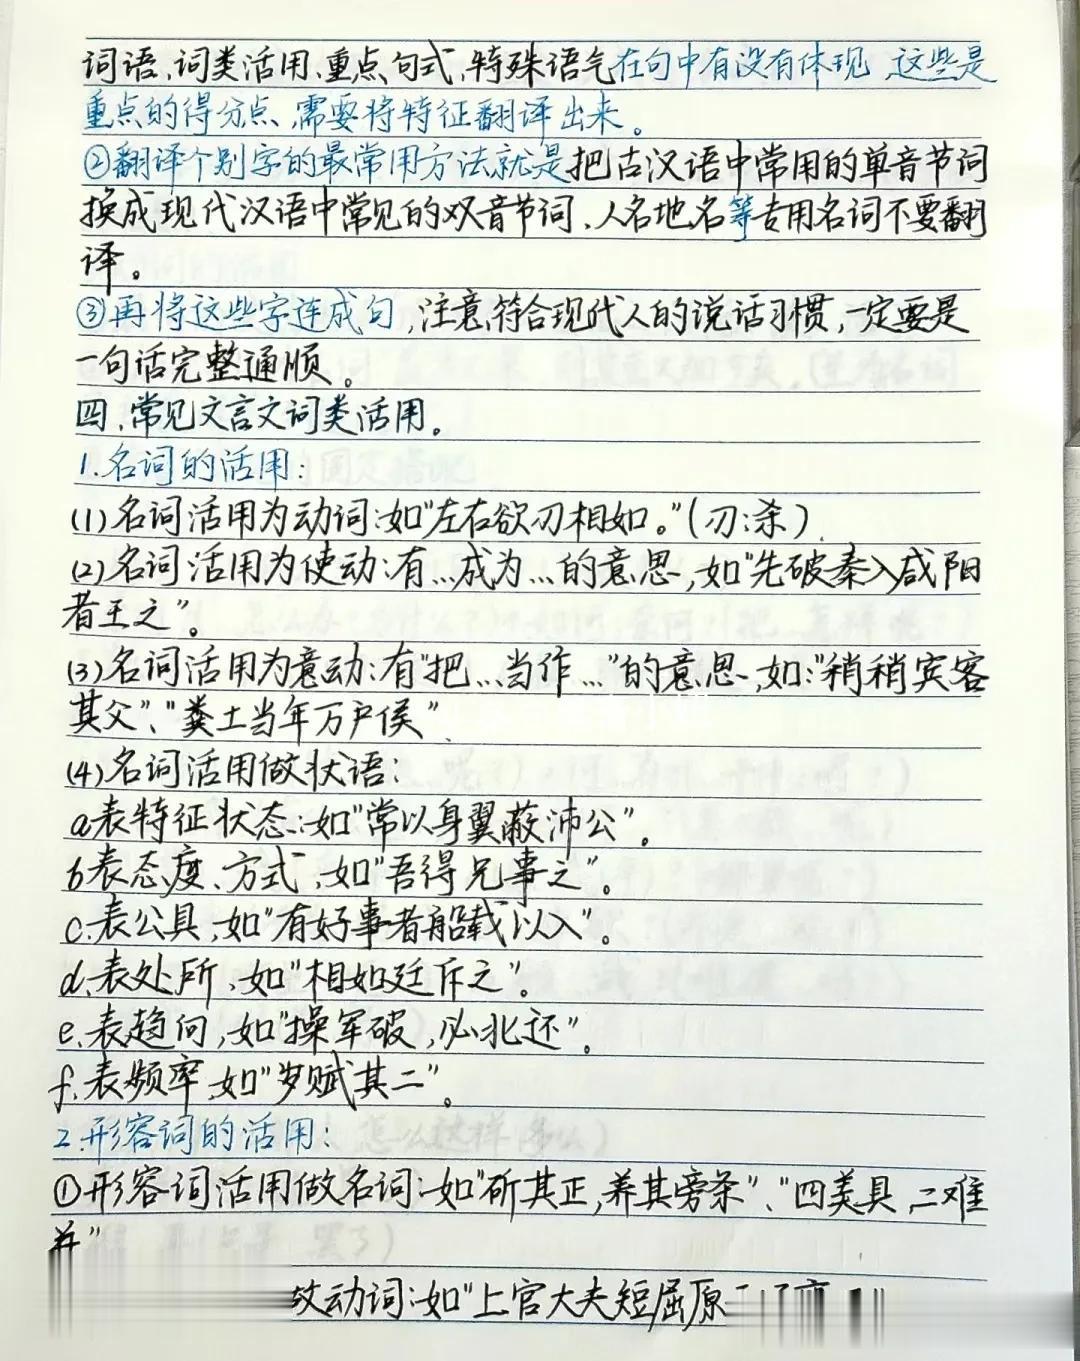 词语、词类活用、重点句式、特殊语气在句中有没有体现,这些是
重点的得分点,需要将特征翻译出来。
②翻译个别字的最常用方法就是把古汉语中常用的单音节词
换成现代汉语中常见的双音节词、人名地名等专用名词不要翻
译。
③再将这些字连成句,注意符合现代人的说话习惯,一定要是
一句话完整通顺。
四、常见文言文词类活用。
1.名词的活用:
(1)名词活用为动词:如"左右欲刃相如。"(刃:杀)
(2)名词活用为使动:有…成为…的意思,如"先破秦入咸阳
者王之"。
(3)名词活用为意动:有"把…当作…"的意思,如:"稍稍宾客
其父"、"粪土当年万户侯"
(4)名词活用做状语:
a表特征状态:如"常以身翼蔽沛公"。
b表态度、方式,如"吾得兄事之"。
c.表公具,如"有好事者船载以入"。
d.表处所,如"相如廷斥之"。
e.表趋向,如"操军破,必北还"。
f.表频率,如"岁赋其二"。
2.形容词的活用:
①形容词活用做名词:如"斫其正,养其旁条"、"四美具,二难
并"
故动词:如"上官大夫短屈原